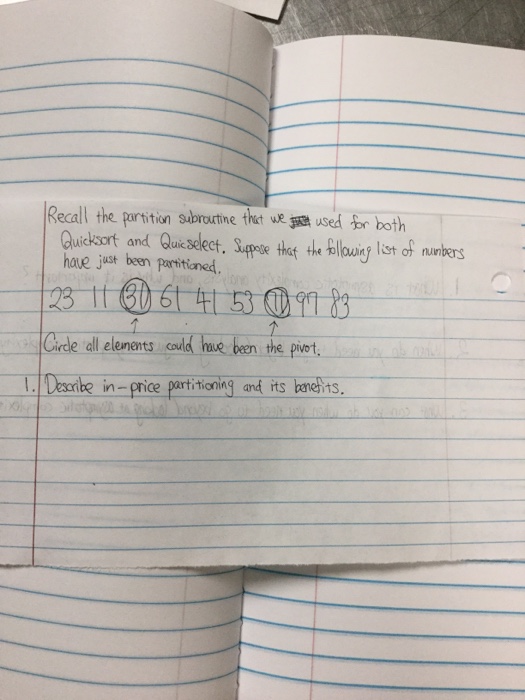 Recall the partition subroutine that we used for both
Quicksort and Quicselect. Suppose that the following list of numbers
have just been partitioned.
23 11 31 61 41 53 71 97 83
Circle all elements could have been the pivot.
1. Describe in-price partitioning and its benefits.